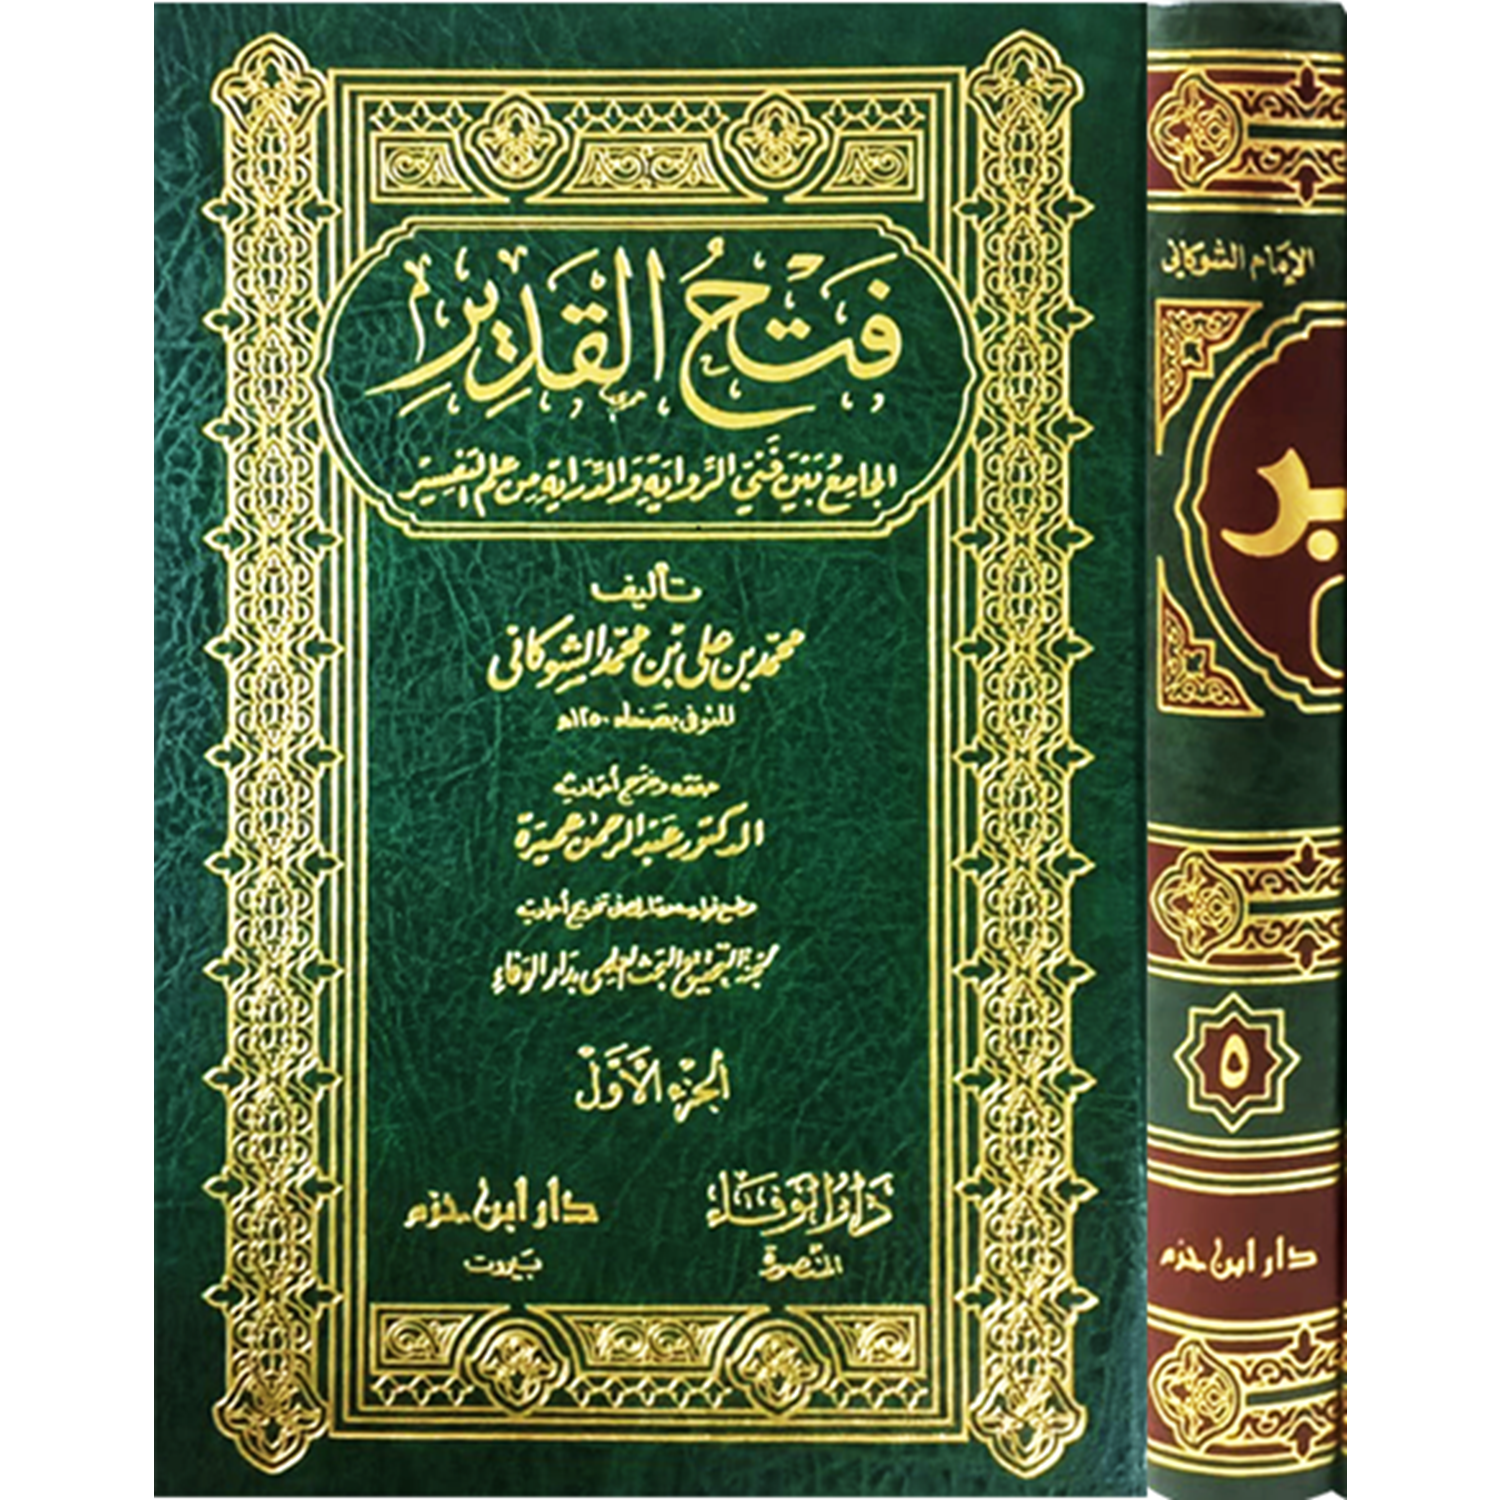 فَتْحُ الْقَدِيرِ
الجَامِعُ بَيْنَ فَنَّيِ الرِّوَايَةِ وَالدِّرَايَةِ مِنْ عِلْمِ التَّفْسِيرِ
تأليف
محمّد بن علي بن محمّد الشوكاني
المتوفى بصنعاء ١٢٥٠هـ
حققه وخرّج أحاديثه
الدكتور عبد الرحمن عميرة
وضع فهارسه وشارك في تخريج أحاديثه
لجنة التحقيق والبحث العلمي بدار الوفاء
الجزء الأوّل
دَارُ الوَفَاء
المنصورة
دار ابن حزم
بيروت
الإمام الشوكاني
٥
دار ابن حزم